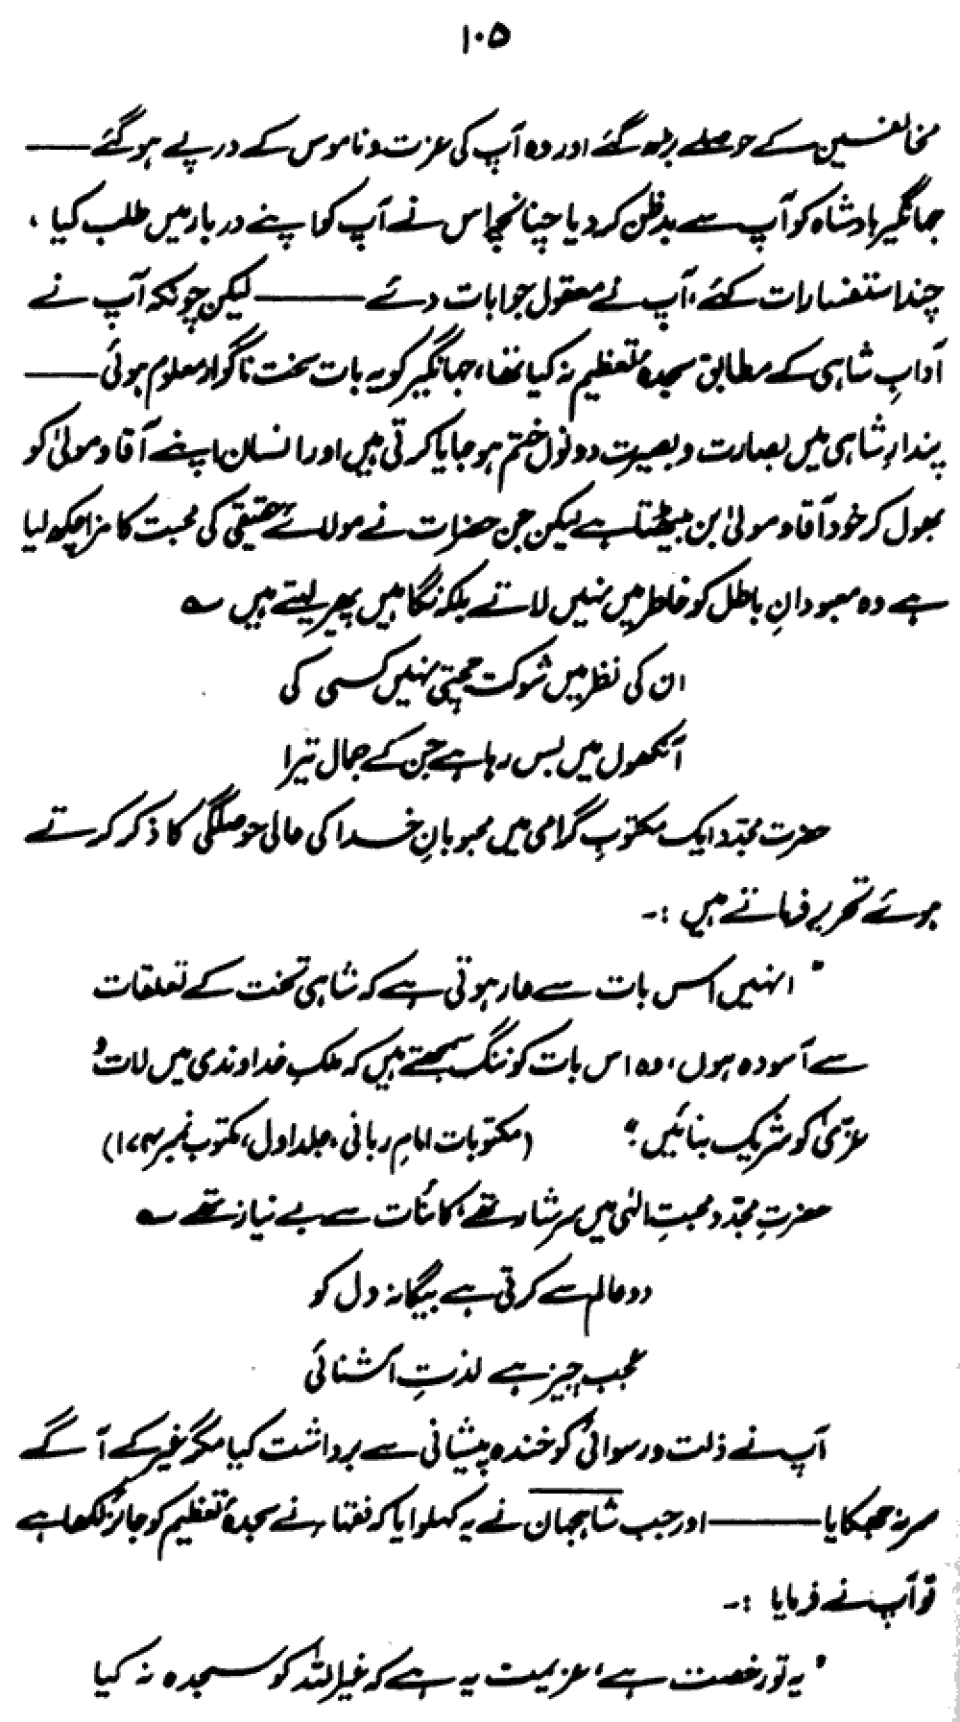 ۱۰۵
مخالفین کے حوصلے بڑھ گئے اور وہ آپ کی عزت و ناموس کے درپے ہو گئے ——
جہانگیر بادشاہ کو آپ سے بدظن کر دیا چنانچہ اس نے آپ کو اپنے دربار میں طلب کیا ،
چند استفسارات کئے، آپ نے معقول جوابات دئے —— لیکن چونکہ آپ نے
آدابِ شاہی کے مطابق سجدۂ تعظیم نہ کیا تھا، جہانگیر کو یہ بات سخت ناگوار معلوم ہوئی ——
پندارِ شاہی میں بصارت و بصیرت دونوں ختم ہو جایا کرتی ہیں اور انسان اپنے آقا و مولیٰ کو
بھول کر خود آقا و مولیٰ بن بیٹھتا ہے لیکن جن حضرات نے مولائے حقیقی کی محبت کا مزا چکھ لیا
ہے وہ معبودانِ باطل کو خاطر میں نہیں لاتے بلکہ نگاہیں پھیر لیتے ہیں ؎
ان کی نظر میں شوکت جچتی نہیں کسی کی
آنکھوں میں بس رہا ہے جن کے جمال تیرا
حضرت مجدّد ایک مکتوبِ گرامی میں محبوبانِ خدا کی عالی حوصلگی کا ذکر کرتے
ہوئے تحریر فرماتے ہیں :۔
" انہیں اس بات سے عار ہوتی ہے کہ شاہی تخت کے تعلقات
سے آسودہ ہوں، وہ اس بات کو ننگ سمجھتے ہیں کہ ملکِ خداوندی میں لات و
عزّیٰ کو شریک بنائیں" (مکتوبات امامِ ربانی، جلد اول، مکتوب نمبر ۱۷۴)
حضرتِ مجدّد محبتِ الٰہی میں سرشار تھے، کائنات سے بے نیاز تھے ؎
دو عالم سے کرتی ہے بیگانہ دل کو
عجب چیز ہے لذتِ آشنائی
آپ نے ذلت و رسوائی کو خندہ پیشانی سے برداشت کیا مگر غیر کے آگے
سر نہ جھکایا —— اور جب شاہجہان نے یہ کہلوایا کہ فقہاء نے سجدۂ تعظیم کو جائز لکھا ہے
تو آپ نے فرمایا :۔
" یہ تو رخصت ہے، عزیمت یہ ہے کہ غیر اللہ کو سجدہ نہ کیا